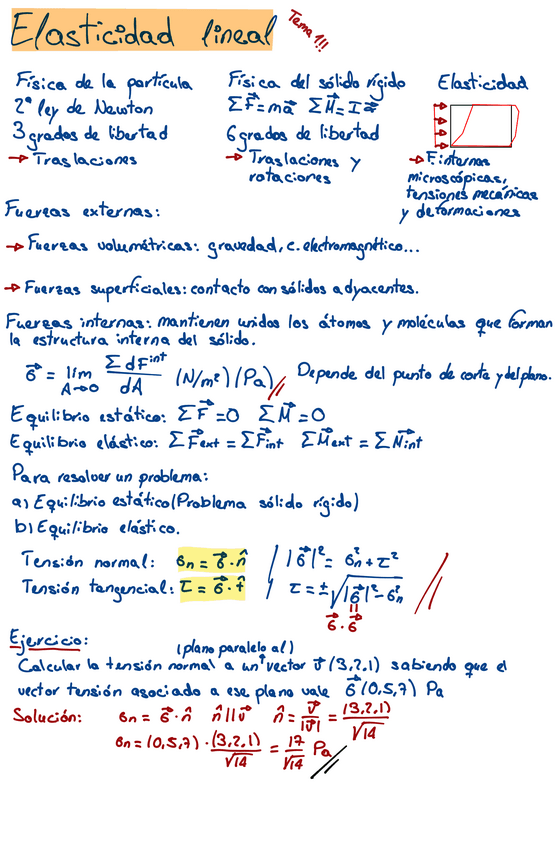 Elasticidad lineal
Tema 1!!
Física de la partícula
2ª ley de Newton
3 grados de libertad
→ Traslaciones
Física del sólido rígido
ΣF⃗=ma⃗ ΣM⃗=Iα⃗
6 grados de libertad
→ Traslaciones y
rotaciones
Elasticidad
→ F.internas
microscópicas,
tensiones mecánicas
y deformaciones
Fuerzas externas:
→ Fuerzas volumétricas: gravedad, c. electromagnético...
→ Fuerzas superficiales: contacto con sólidos adyacentes.
Fuerzas internas: mantienen unidos los átomos y moléculas que forman
la estructura interna del sólido.
σ⃗ = lím A→0 ΣdF⃗ⁱⁿᵗ/dA (N/m²)(Pa) Depende del punto de corte y del plano.
Equilibrio estático: ΣF⃗=0 ΣM⃗=0
Equilibrio elástico: ΣF⃗ext = ΣF⃗int ΣM⃗ext = ΣM⃗int
Para resolver un problema:
a) Equilibrio estático (Problema sólido rígido)
b) Equilibrio elástico.
Tensión normal: σn = σ⃗·n̂ / |σ⃗|² = σn² + τ²
Tensión tangencial: τ = σ⃗·t̂ / τ = ±√(|σ⃗|² - σn²)
σ⃗·σ⃗
Ejercicio:
(plano paralelo al)
Calcular la tensión normal a un vector v⃗ (3,2,1) sabiendo que el
vector tensión asociado a ese plano vale σ⃗ (0,5,7) Pa
Solución: σn = σ⃗·n̂ n̂||v⃗ n̂ = v⃗/|v⃗| = (3,2,1)/√14
σn = (0,5,7)·(3,2,1)/√14 = 17/√14 Pa